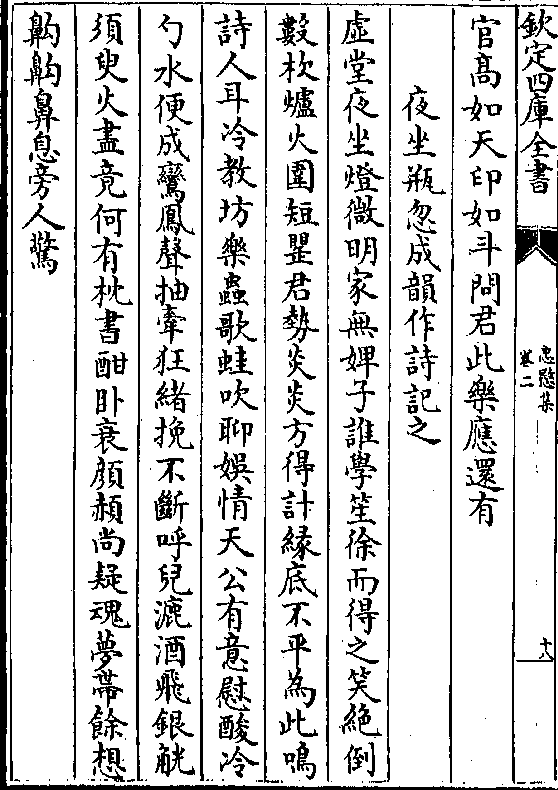 欽定四庫全書
忠愍集
卷二
十八
官髙如天印如斗問君此樂應還有
夜坐瓶忽成韻作詩記之
虛堂夜坐燈微明家無婢子誰學笙徐而得之笑絶倒
數杴爐火圍短罌君勢炎炎方得計緣底不平為此鳴
詩人耳冷教坊樂蟲歌蛙吹聊娛情天公有意慰酸冷
勺水便成鸞鳳聲抽牽狂緒挽不斷呼兒漉酒飛銀觥
須臾火盡竟何有枕書酣卧衰顔赬尚疑魂夢帶餘想
齁齁鼻息旁人驚